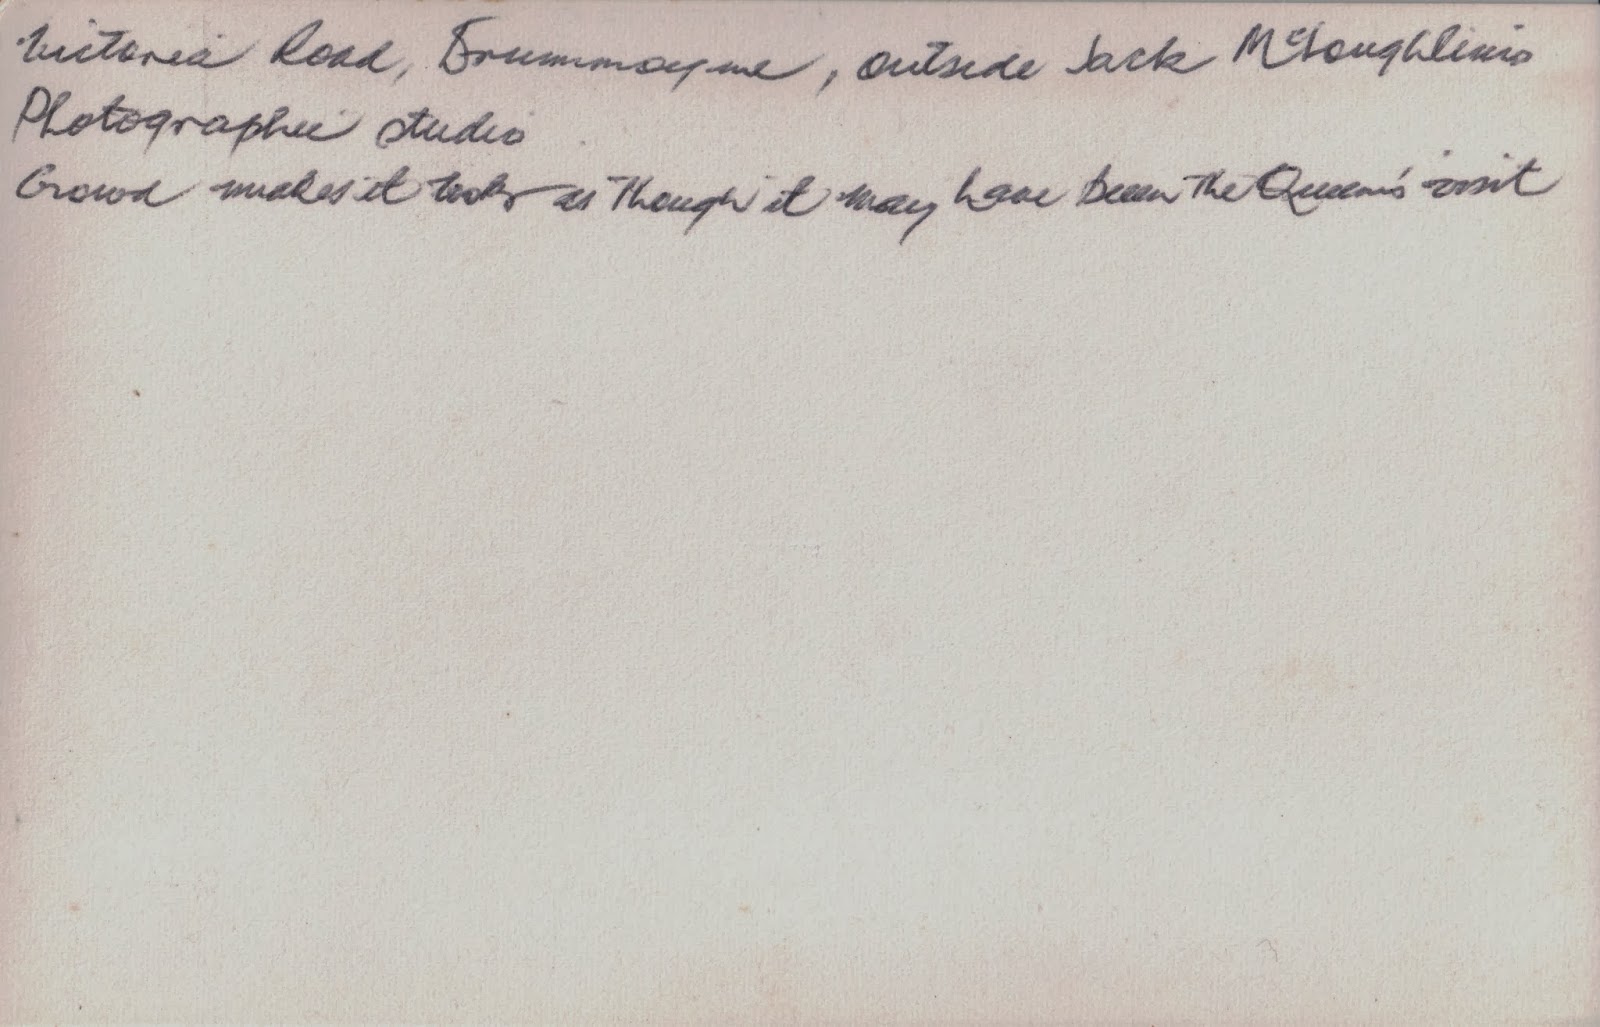 Victoria Road, Drummoyne, outside Jack McLoughlin's
Photographic studio
Crowd makes it look as though it may have been the Queen's visit